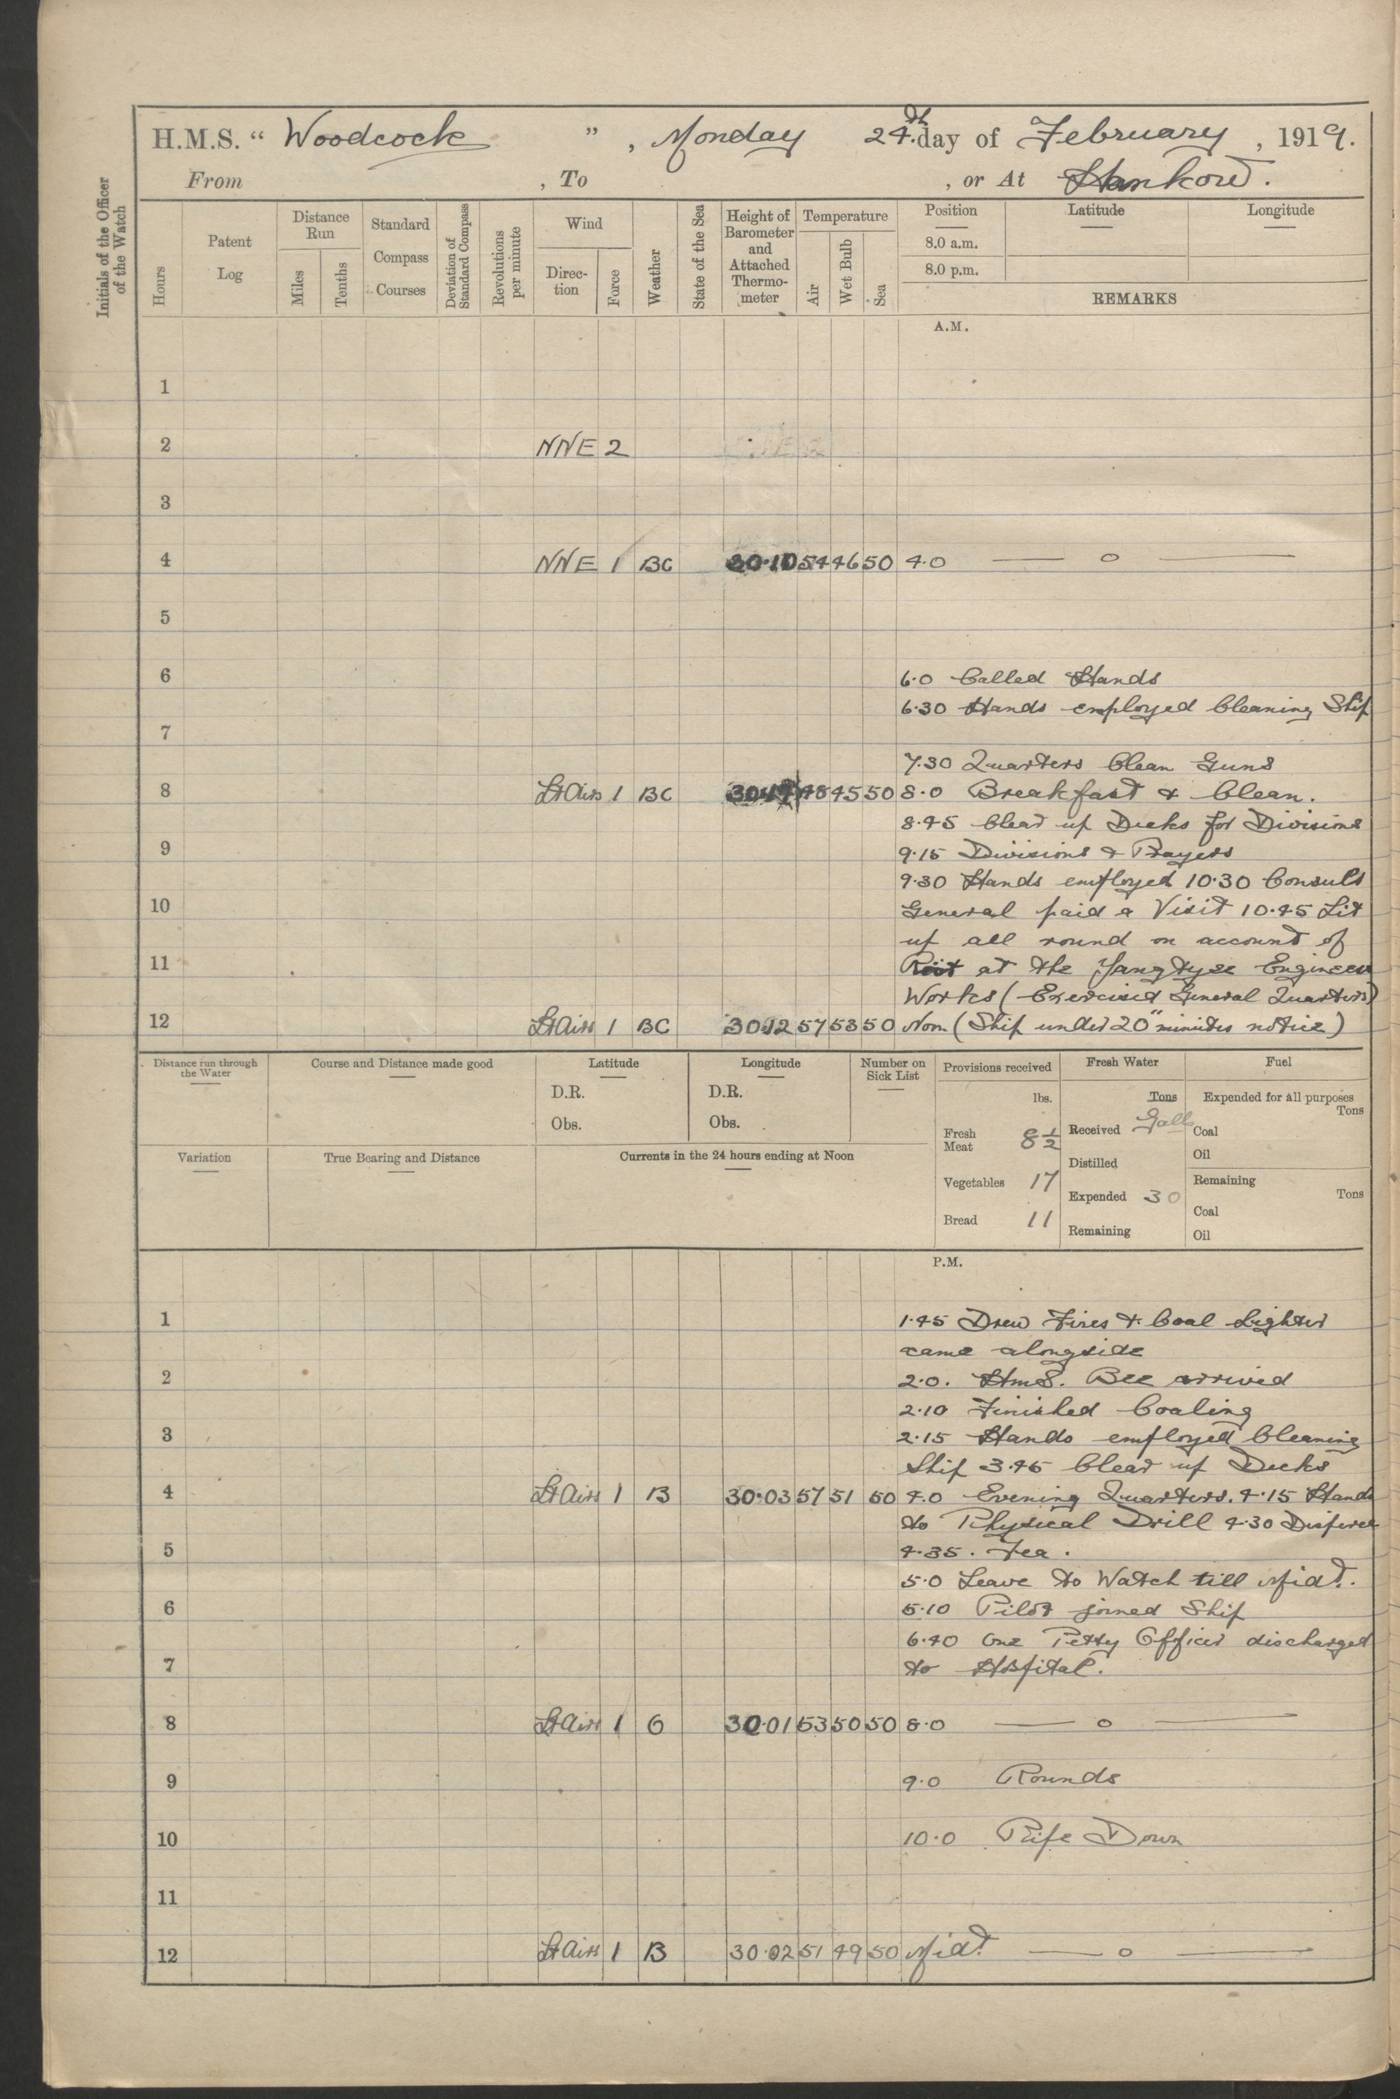 H.M.S. “ Woodcock ” , Monday 24th day of February , 1919.
From , To , or At Hankow.
Initials of the Officer of the Watch
Hours
Patent Log
Distance Run
Miles
Tenths
Standard Compass Courses
Deviation of Standard Compass
Revolutions per minute
Wind
Direc-tion
Force
Weather
State of the Sea
Height of Barometer and Attached Thermo-meter
Temperature
Air
Wet Bulb
Sea
Position
8.0 a.m.
8.0 p.m.
Latitude
Longitude
REMARKS
A.M.
1
2 NNE 2
3
4 NNE 1 BC 30·10 54 46 50 4·0 — o —
5
6 6·0 Called Hands
6·30 Hands employed Cleaning Ship
7
7·30 Quarters Clean Guns
8 Lt Airs 1 BC 48 45 50 8·0 Breakfast & Clean.
8·45 Clear up Decks for Divisions
9
9·15 Divisions & Prayers
9·30 Hands employed 10·30 Consult
10 General paid a Visit 10·45 Lit
up all round on account of
11 Riot at the Yangtyse Engineer
Works (Exercised General Quarters)
12 Lt Airs 1 BC 30·12 57 53 50 Noon (Ship under 20" minutes notice)
Distance run through the Water
Course and Distance made good
Latitude
D.R.
Obs.
Longitude
D.R.
Obs.
Number on Sick List
Provisions received
lbs.
Fresh Meat 8½
Vegetables 17
Bread 11
Fresh Water
Tons
Received Galls
Distilled
Expended 30
Remaining
Fuel
Expended for all purposes
Tons
Coal
Oil
Remaining
Tons
Coal
Oil
Variation
True Bearing and Distance
Currents in the 24 hours ending at Noon
P.M.
1 1·45 Drew Fires & Coal Lighter
came alongside
2 2·0. HmS. Bee arrived
2·10 Finished Coaling
3 2·15 Hands employed Cleaning
Ship 3·45 Clear up Decks
4 Lt Airs 1 B 30·03 57 51 50 4·0 Evening Quarters. 4·15 Hands
to Physical Drill 4·30 Disperse
5 4·35. Tea.
5·0 Leave to Watch till Midt.
6 5·10 Pilot joined Ship
6·40 One Petty Officer discharged
7 to Hospital.
8 Lt Airs 1 O 30·01 53 50 50 8·0 — o —
9 9·0 Rounds
10 10·0 Pipe Down
11
12 Lt Airs 1 B 30·02 51 49 50 Midt — o —